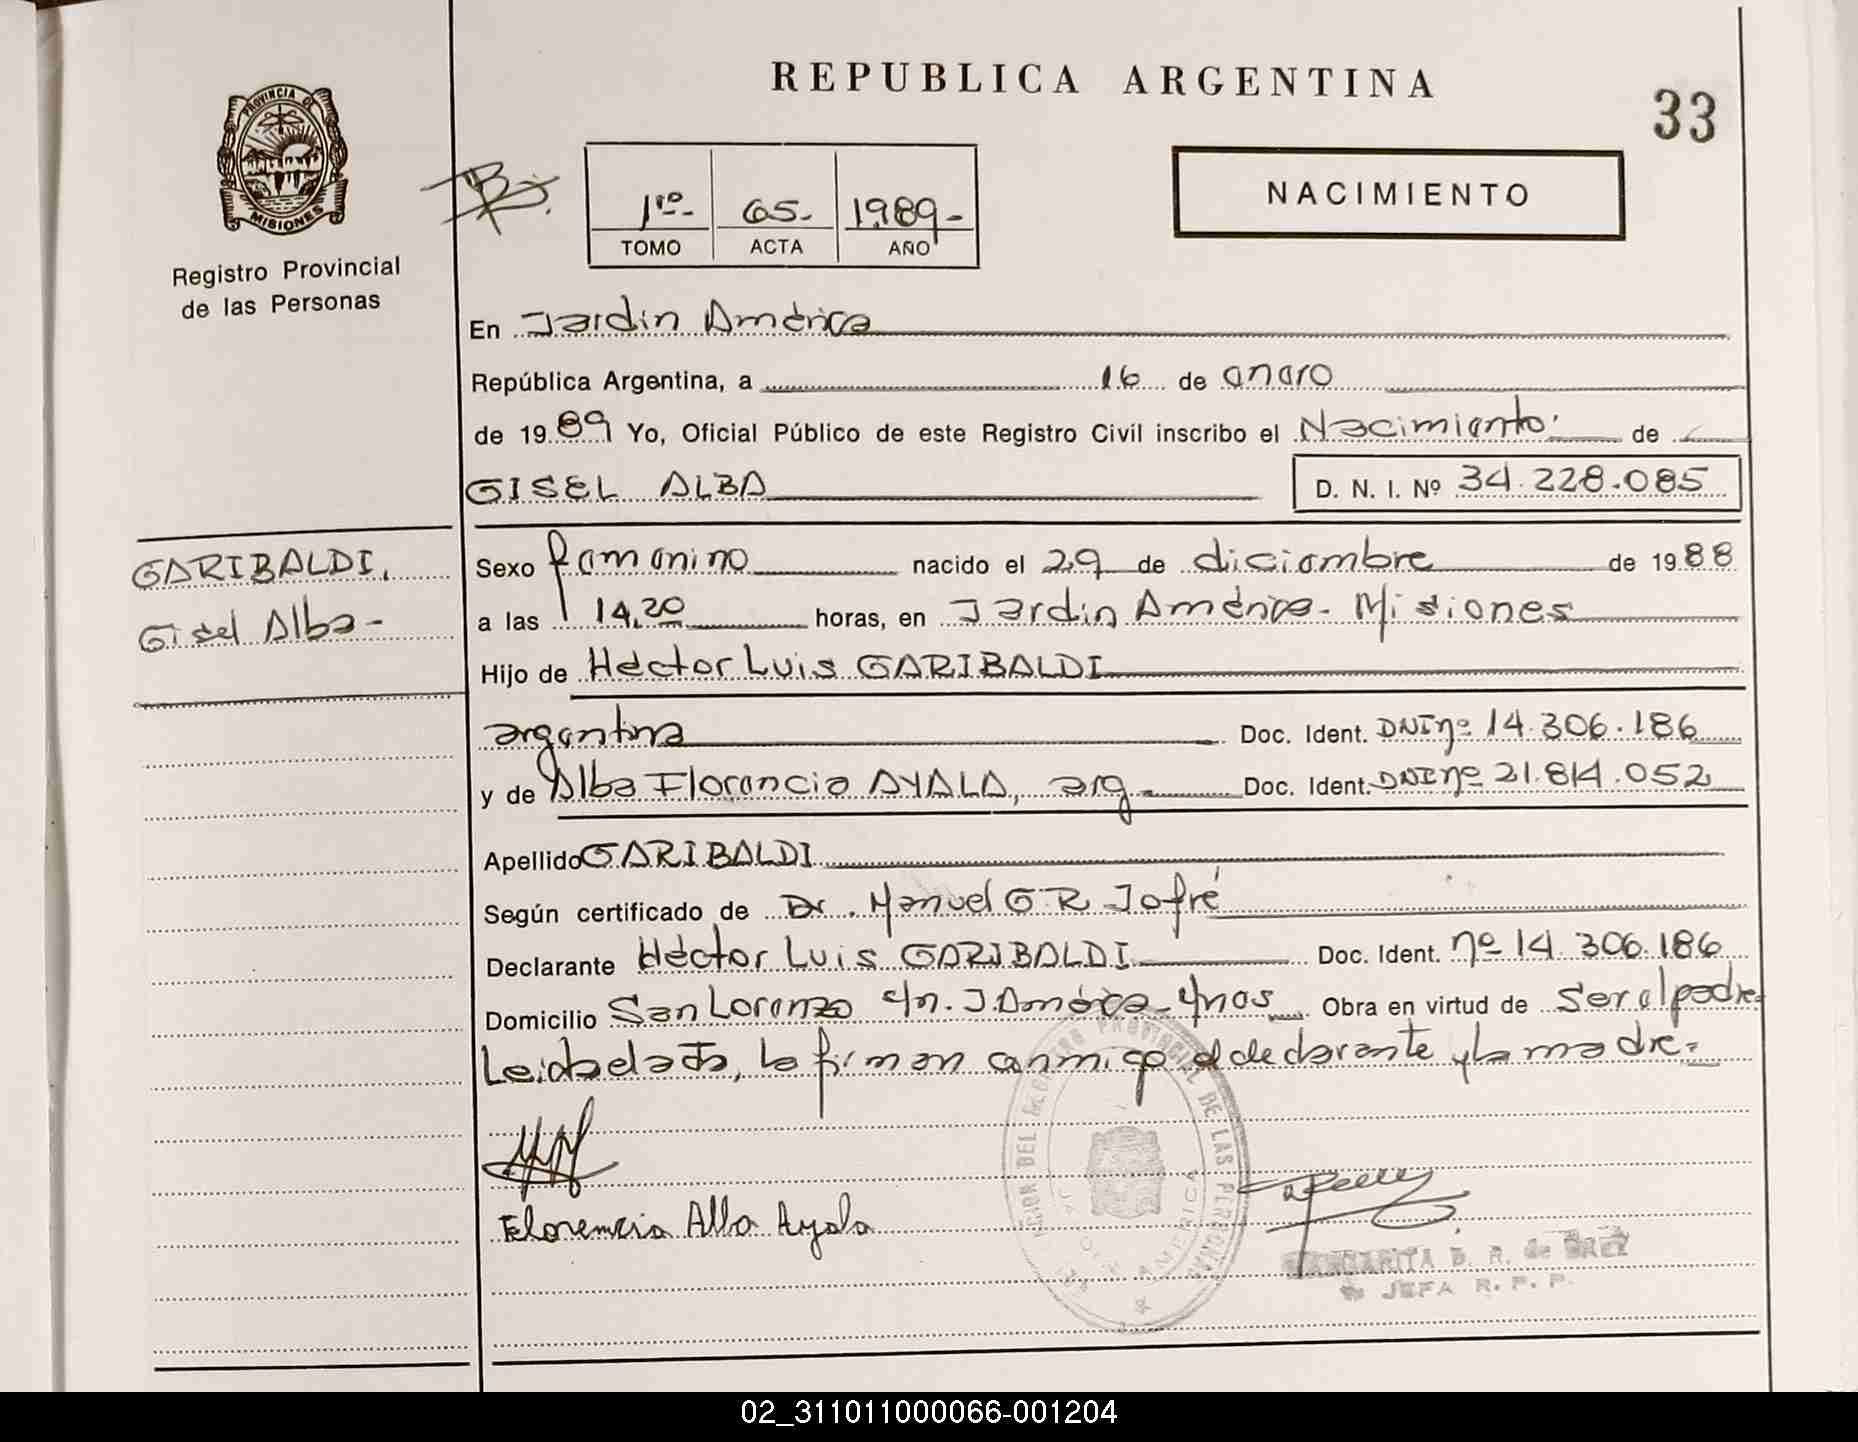 REPUBLICA ARGENTINA
33
PROVINCIA DE
MISIONES
Registro Provincial
de las Personas
1ro-
65-
1989-
TOMO
ACTA
AÑO
NACIMIENTO
En Jardin América
República Argentina, a 16 de enero
de 1989 Yo, Oficial Público de este Registro Civil inscribo el Nacimiento de
GISEL ALBA
D. N. I. Nº 34.228.085
GARIBALDI,
Gisel Alba-
Sexo femenino nacido el 29 de diciembre de 1988
a las 14,20 horas, en Jardin América- Misiones
Hijo de Héctor Luis GARIBALDI
argentina Doc. Ident. DNI nº 14.306.186
y de Alba Florencia AYALA, arg. Doc. Ident. DNI nº 21.814.052
Apellido GARIBALDI
Según certificado de Dr. Manuel G R Jofré
Declarante Héctor Luis GARIBALDI Doc. Ident. nº 14.306.186
Domicilio San Lorenzo s/n. J. América- Mnes Obra en virtud de ser el padre-
Leida el acta, la firman conmigo el declarante y la madre=
Florencia Alba Ayala
REGISTRO PROVINCIAL DE LAS PERSONAS
AMERICA
MARGARITA B. R. de
JEFA R. P. P.
02_311011000066-001204